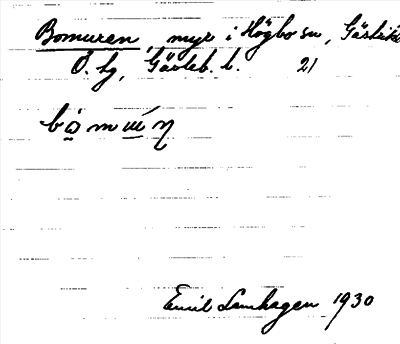 Bomuren, myr i Högbo sn, Gästrikl
Ö. hg, Gävleb. l. 21
Emil Lamhagen 1930